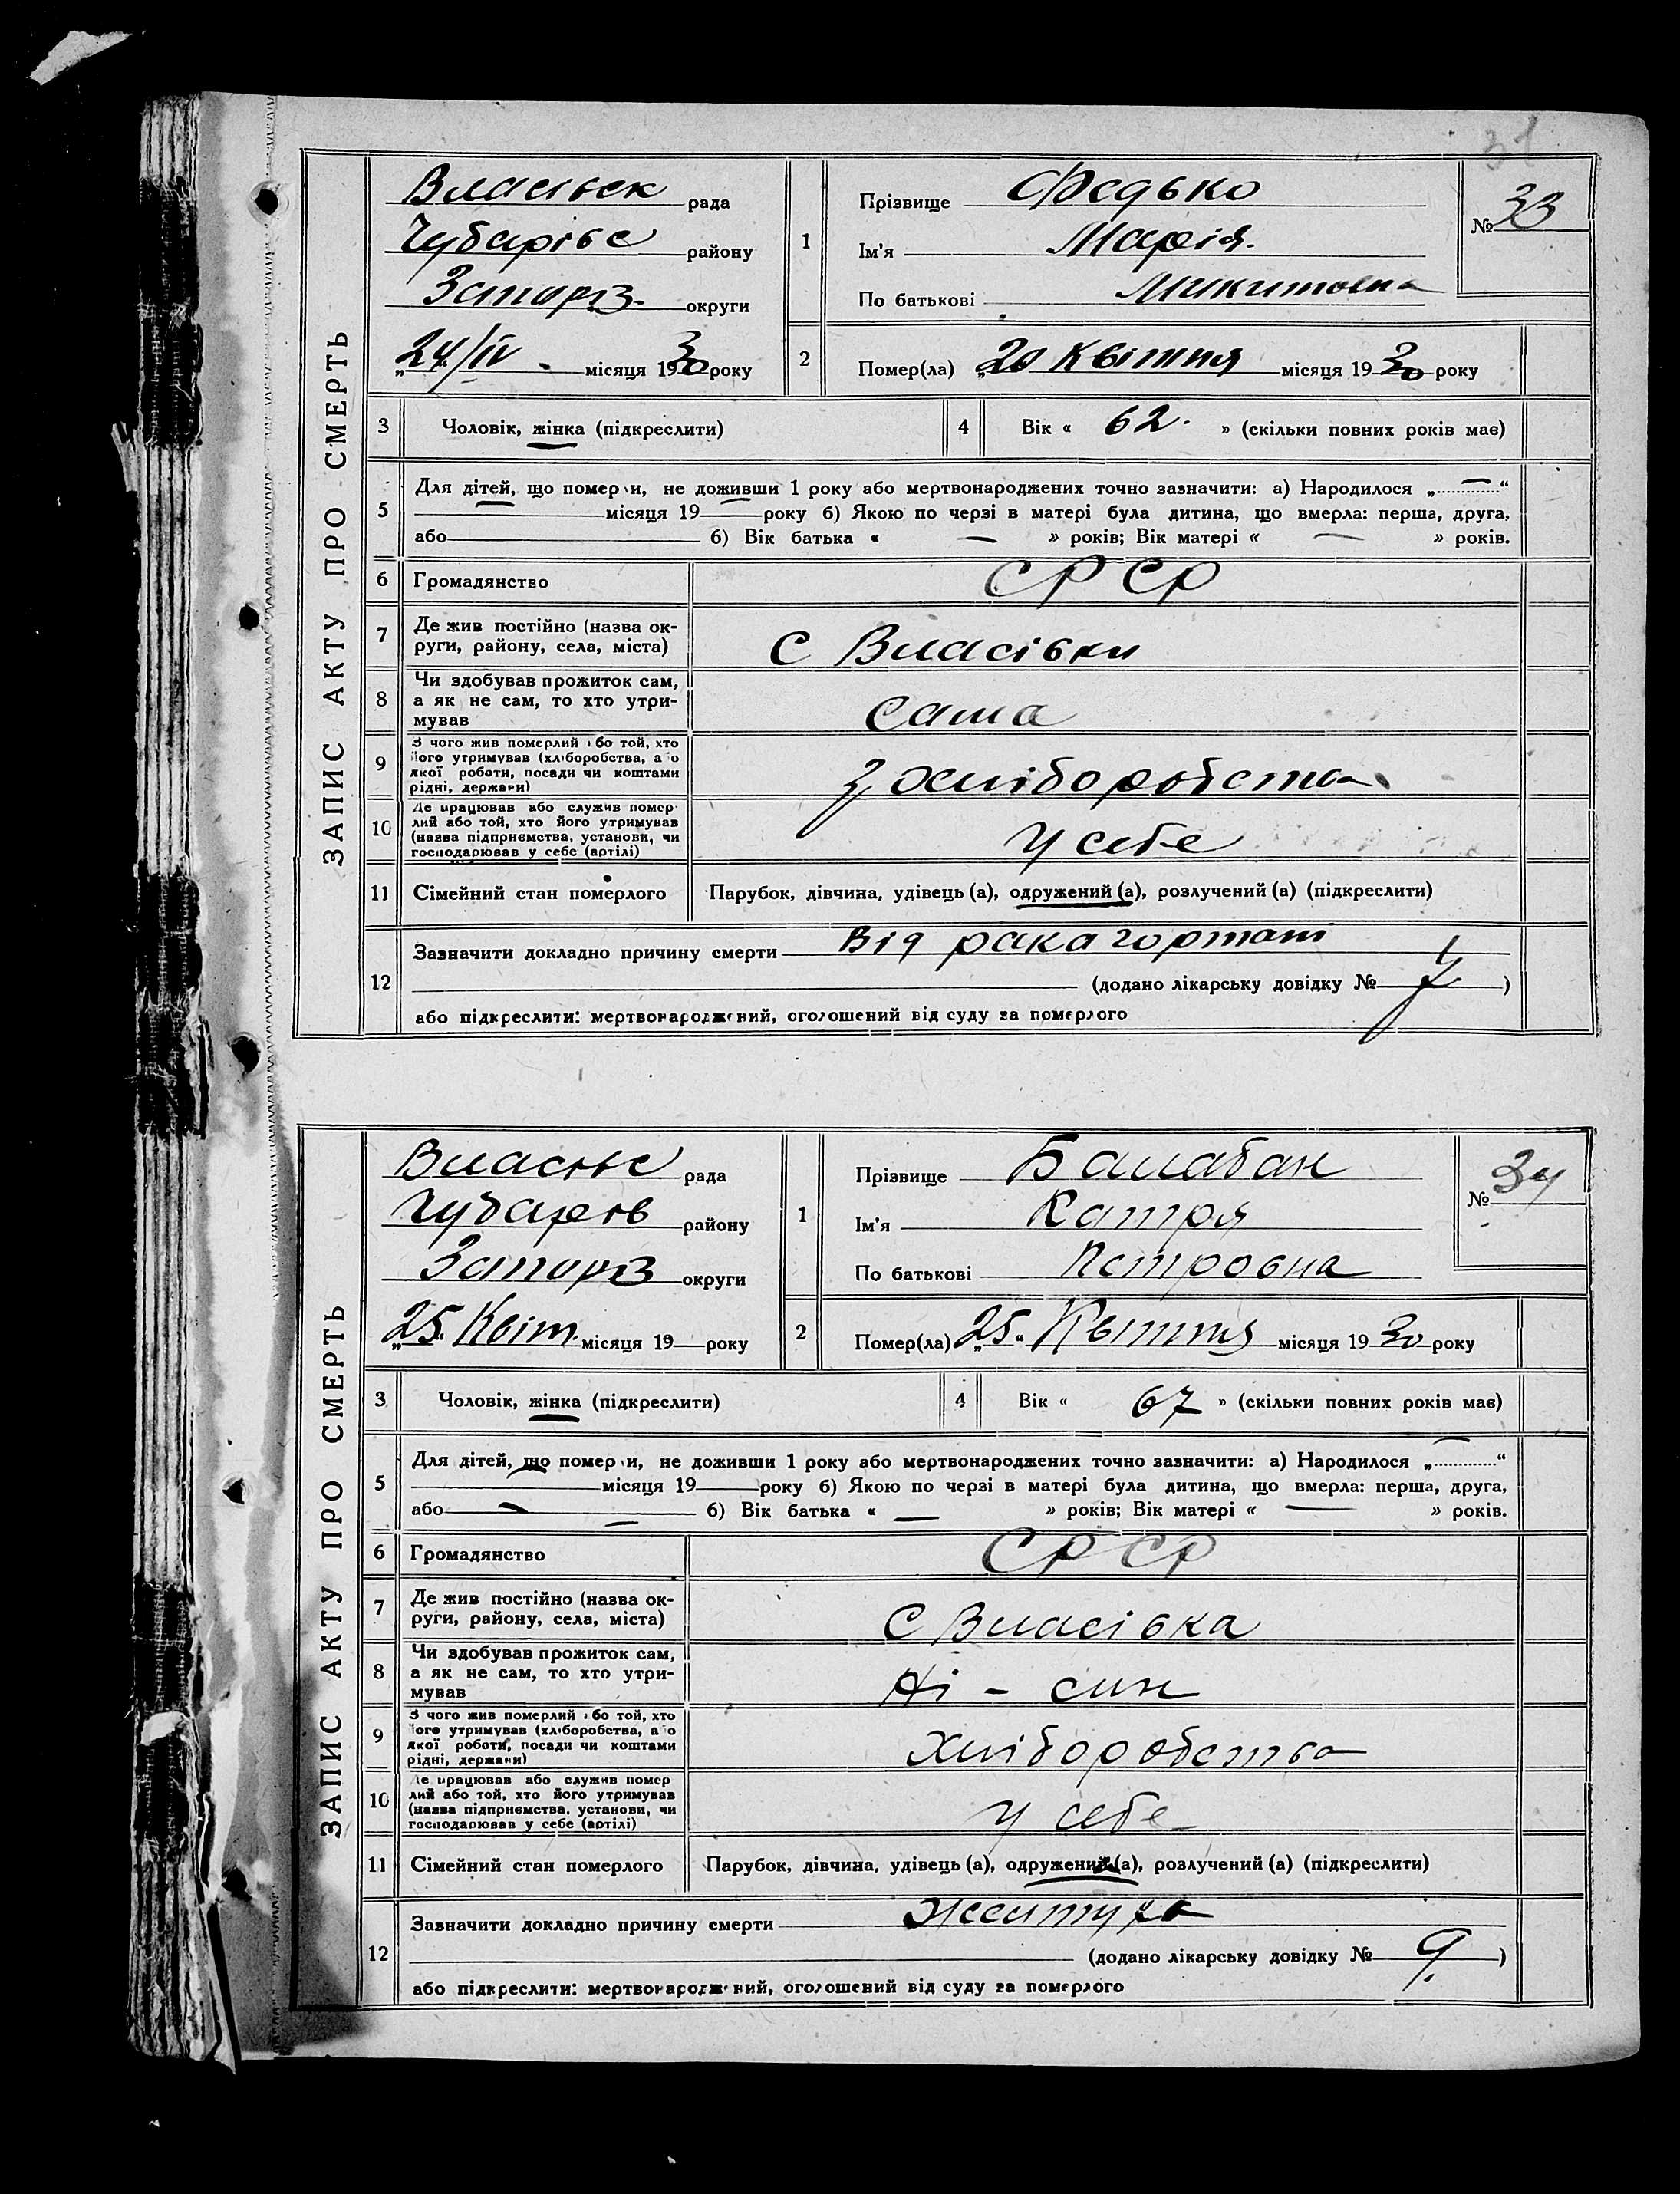 31
ЗАПИС АКТУ ПРО СМЕРТЬ
Власівск рада
Чубарівс району
Запоріз. округи
„24/IV місяця 1930 року
1
Прізвище Федько
Ім'я Марія.
По батькові Микитовна
№ 33
2 Помер(ла) „20 Квітня місяця 1930 року
3 Чоловік, жінка (підкреслити)
4 Вік « 62. » (скільки повних років має)
5 Для дітей, що померли, не доживши 1 року або мертвонароджених точно зазначити: а) Народилося „ — “
місяця 19 року б) Якою по черзі в матері була дитина, що вмерла: перша, друга,
або б) Вік батька « — » років; Вік матері « — » років.
6 Громадянство СРСР
7 Де жив постійно (назва ок-
руги, району, села, міста) С Власівки
8 Чи здобував прожиток сам,
а як не сам, то хто утри-
мував Сама
9 З чого жив померлий або той, хто
його утримував (хліборобства, або
якої роботи, посади чи коштами
рідні, держави) З хліборобства
10 Де працював або служив помер-
лий або той, хто його утримував
(назва підприємства, установи, чи
господарював у себе (артілі) У себе
11 Сімейний стан померлого Парубок, дівчина, удівець (а), одружений (а), розлучений (а) (підкреслити)
12 Зазначити докладно причину смерти Від рака гортані
(додано лікарську довідку № )
або підкреслити: мертвонароджений, оголошений від суду за померлого
ЗАПИС АКТУ ПРО СМЕРТЬ
Власівс рада
Чубарів району
Запоріз округи
„25“ Квіт. місяця 19 року
1
Прізвище Балабан
Ім'я Катря
По батькові Петровна
№ 34
2 Помер(ла) „25“ Квітня місяця 1930 року
3 Чоловік, жінка (підкреслити)
4 Вік « 67 » (скільки повних років має)
5 Для дітей, що померли, не доживши 1 року або мертвонароджених точно зазначити: а) Народилося „ — “
місяця 19 року б) Якою по черзі в матері була дитина, що вмерла: перша, друга,
або — б) Вік батька « — » років; Вік матері « — » років.
6 Громадянство СРСР
7 Де жив постійно (назва ок-
руги, району, села, міста) С Власівка
8 Чи здобував прожиток сам,
а як не сам, то хто утри-
мував Ні - син
9 З чого жив померлий або той, хто
його утримував (хліборобства, або
якої роботи, посади чи коштами
рідні, держави) Хліборобства
10 Де працював або служив помер
лий або той, хто його утримував
(назва підприємства, установи, чи
господарював у себе (артілі) У себе
11 Сімейний стан померлого Парубок, дівчина, удівець (а), одружений (а), розлучений (а) (підкреслити)
12 Зазначити докладно причину смерти Жовтуха
(додано лікарську довідку № 9. )
або підкреслити: мертвонароджений, оголошений від суду за померлого